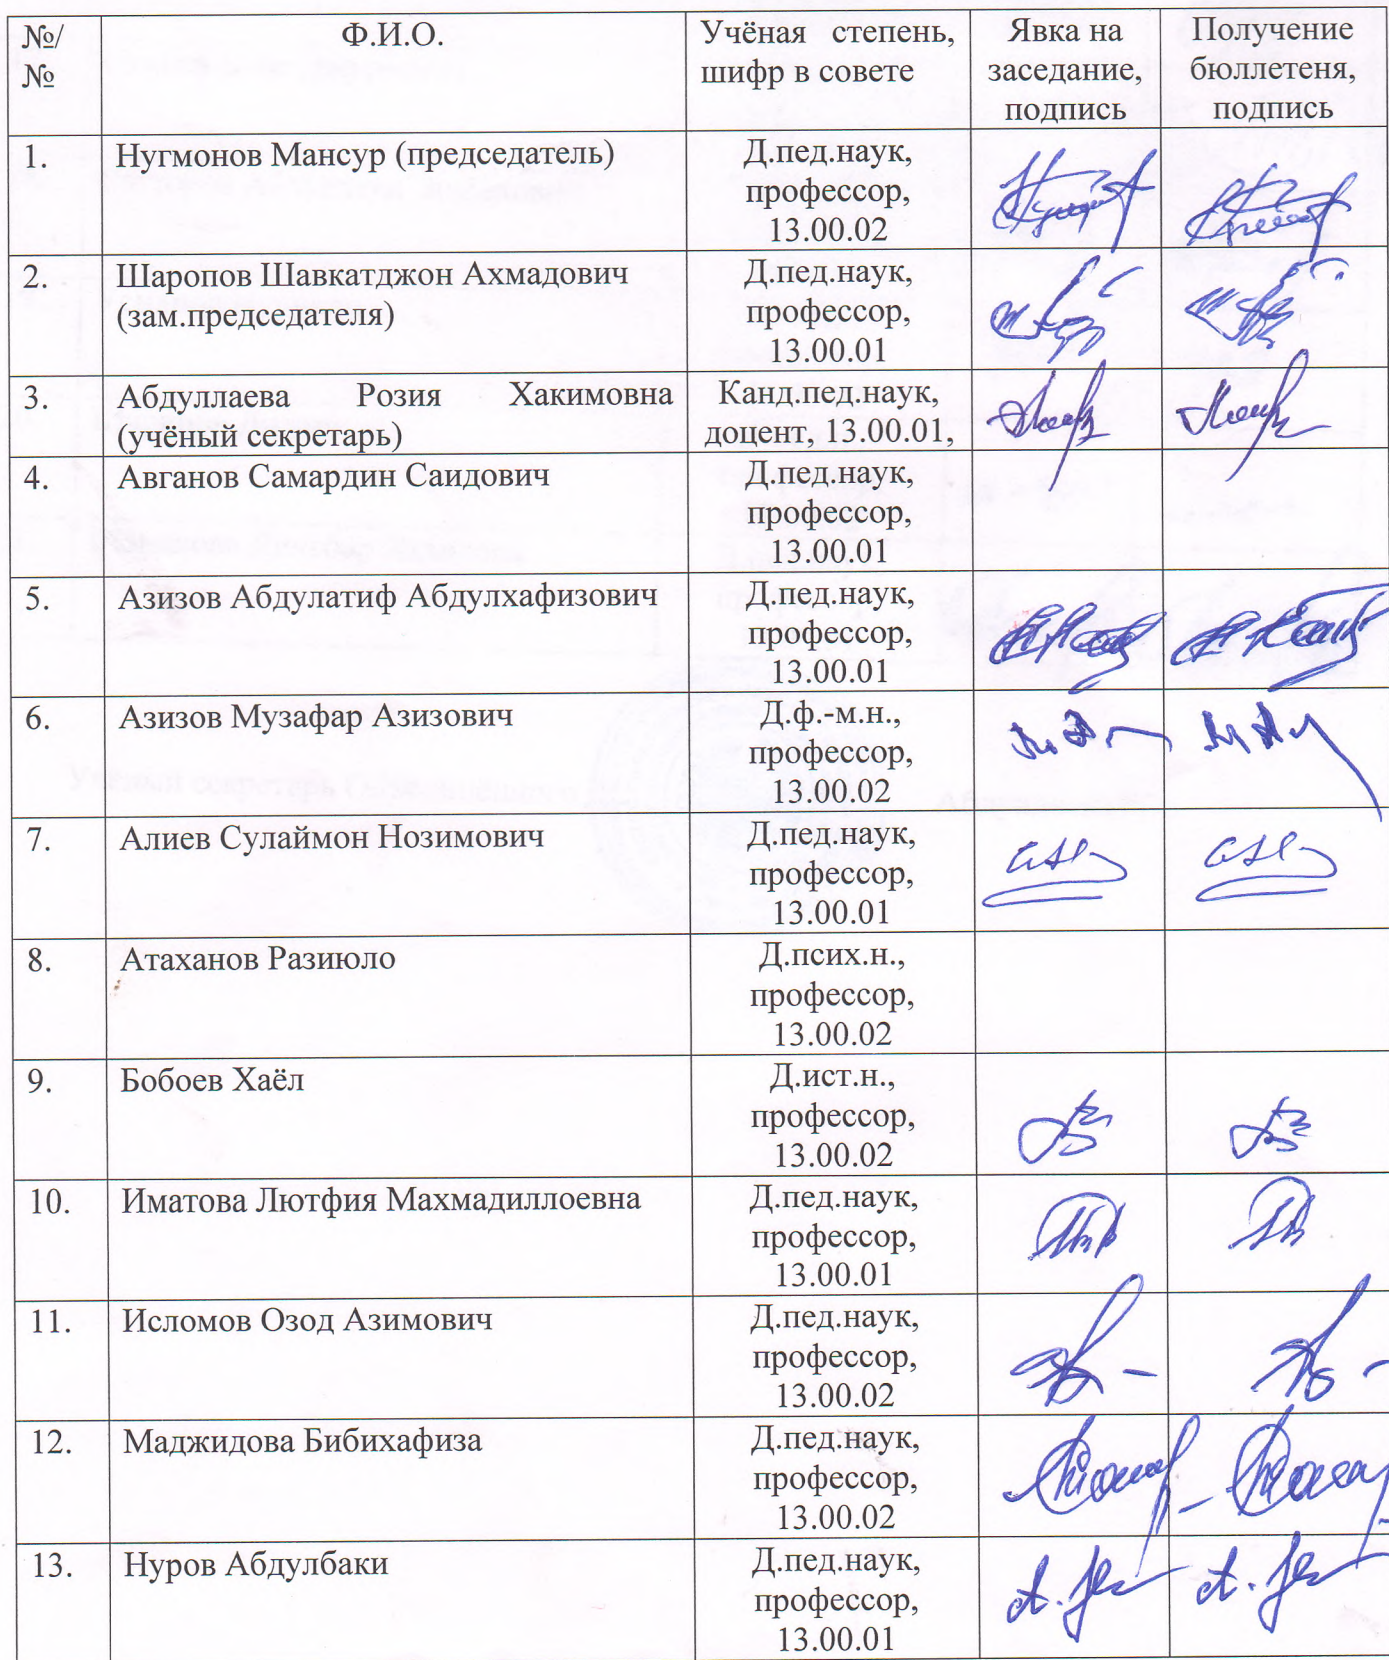 №/
№
Ф.И.О.
Учёная степень,
шифр в совете
Явка на
заседание,
подпись
Получение
бюллетеня,
подпись
1.
Нугмонов Мансур (председатель)
Д.пед.наук,
профессор,
13.00.02
2.
Шаропов Шавкатджон Ахмадович
(зам.председателя)
Д.пед.наук,
профессор,
13.00.01
3.
Абдуллаева Розия Хакимовна
(учёный секретарь)
Канд.пед.наук,
доцент, 13.00.01,
4.
Авганов Самардин Саидович
Д.пед.наук,
профессор,
13.00.01
5.
Азизов Абдулатиф Абдулхафизович
Д.пед.наук,
профессор,
13.00.01
6.
Азизов Музафар Азизович
Д.ф.-м.н.,
профессор,
13.00.02
7.
Алиев Сулаймон Нозимович
Д.пед.наук,
профессор,
13.00.01
8.
Атаханов Разиюло
Д.псих.н.,
профессор,
13.00.02
9.
Бобоев Хаёл
Д.ист.н.,
профессор,
13.00.02
10.
Иматова Лютфия Махмадиллоевна
Д.пед.наук,
профессор,
13.00.01
11.
Исломов Озод Азимович
Д.пед.наук,
профессор,
13.00.02
12.
Маджидова Бибихафиза
Д.пед.наук,
профессор,
13.00.02
13.
Нуров Абдулбаки
Д.пед.наук,
профессор,
13.00.01